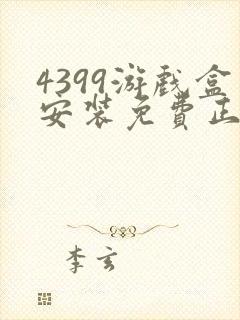 4399游戏盒
安装免费正
李玄